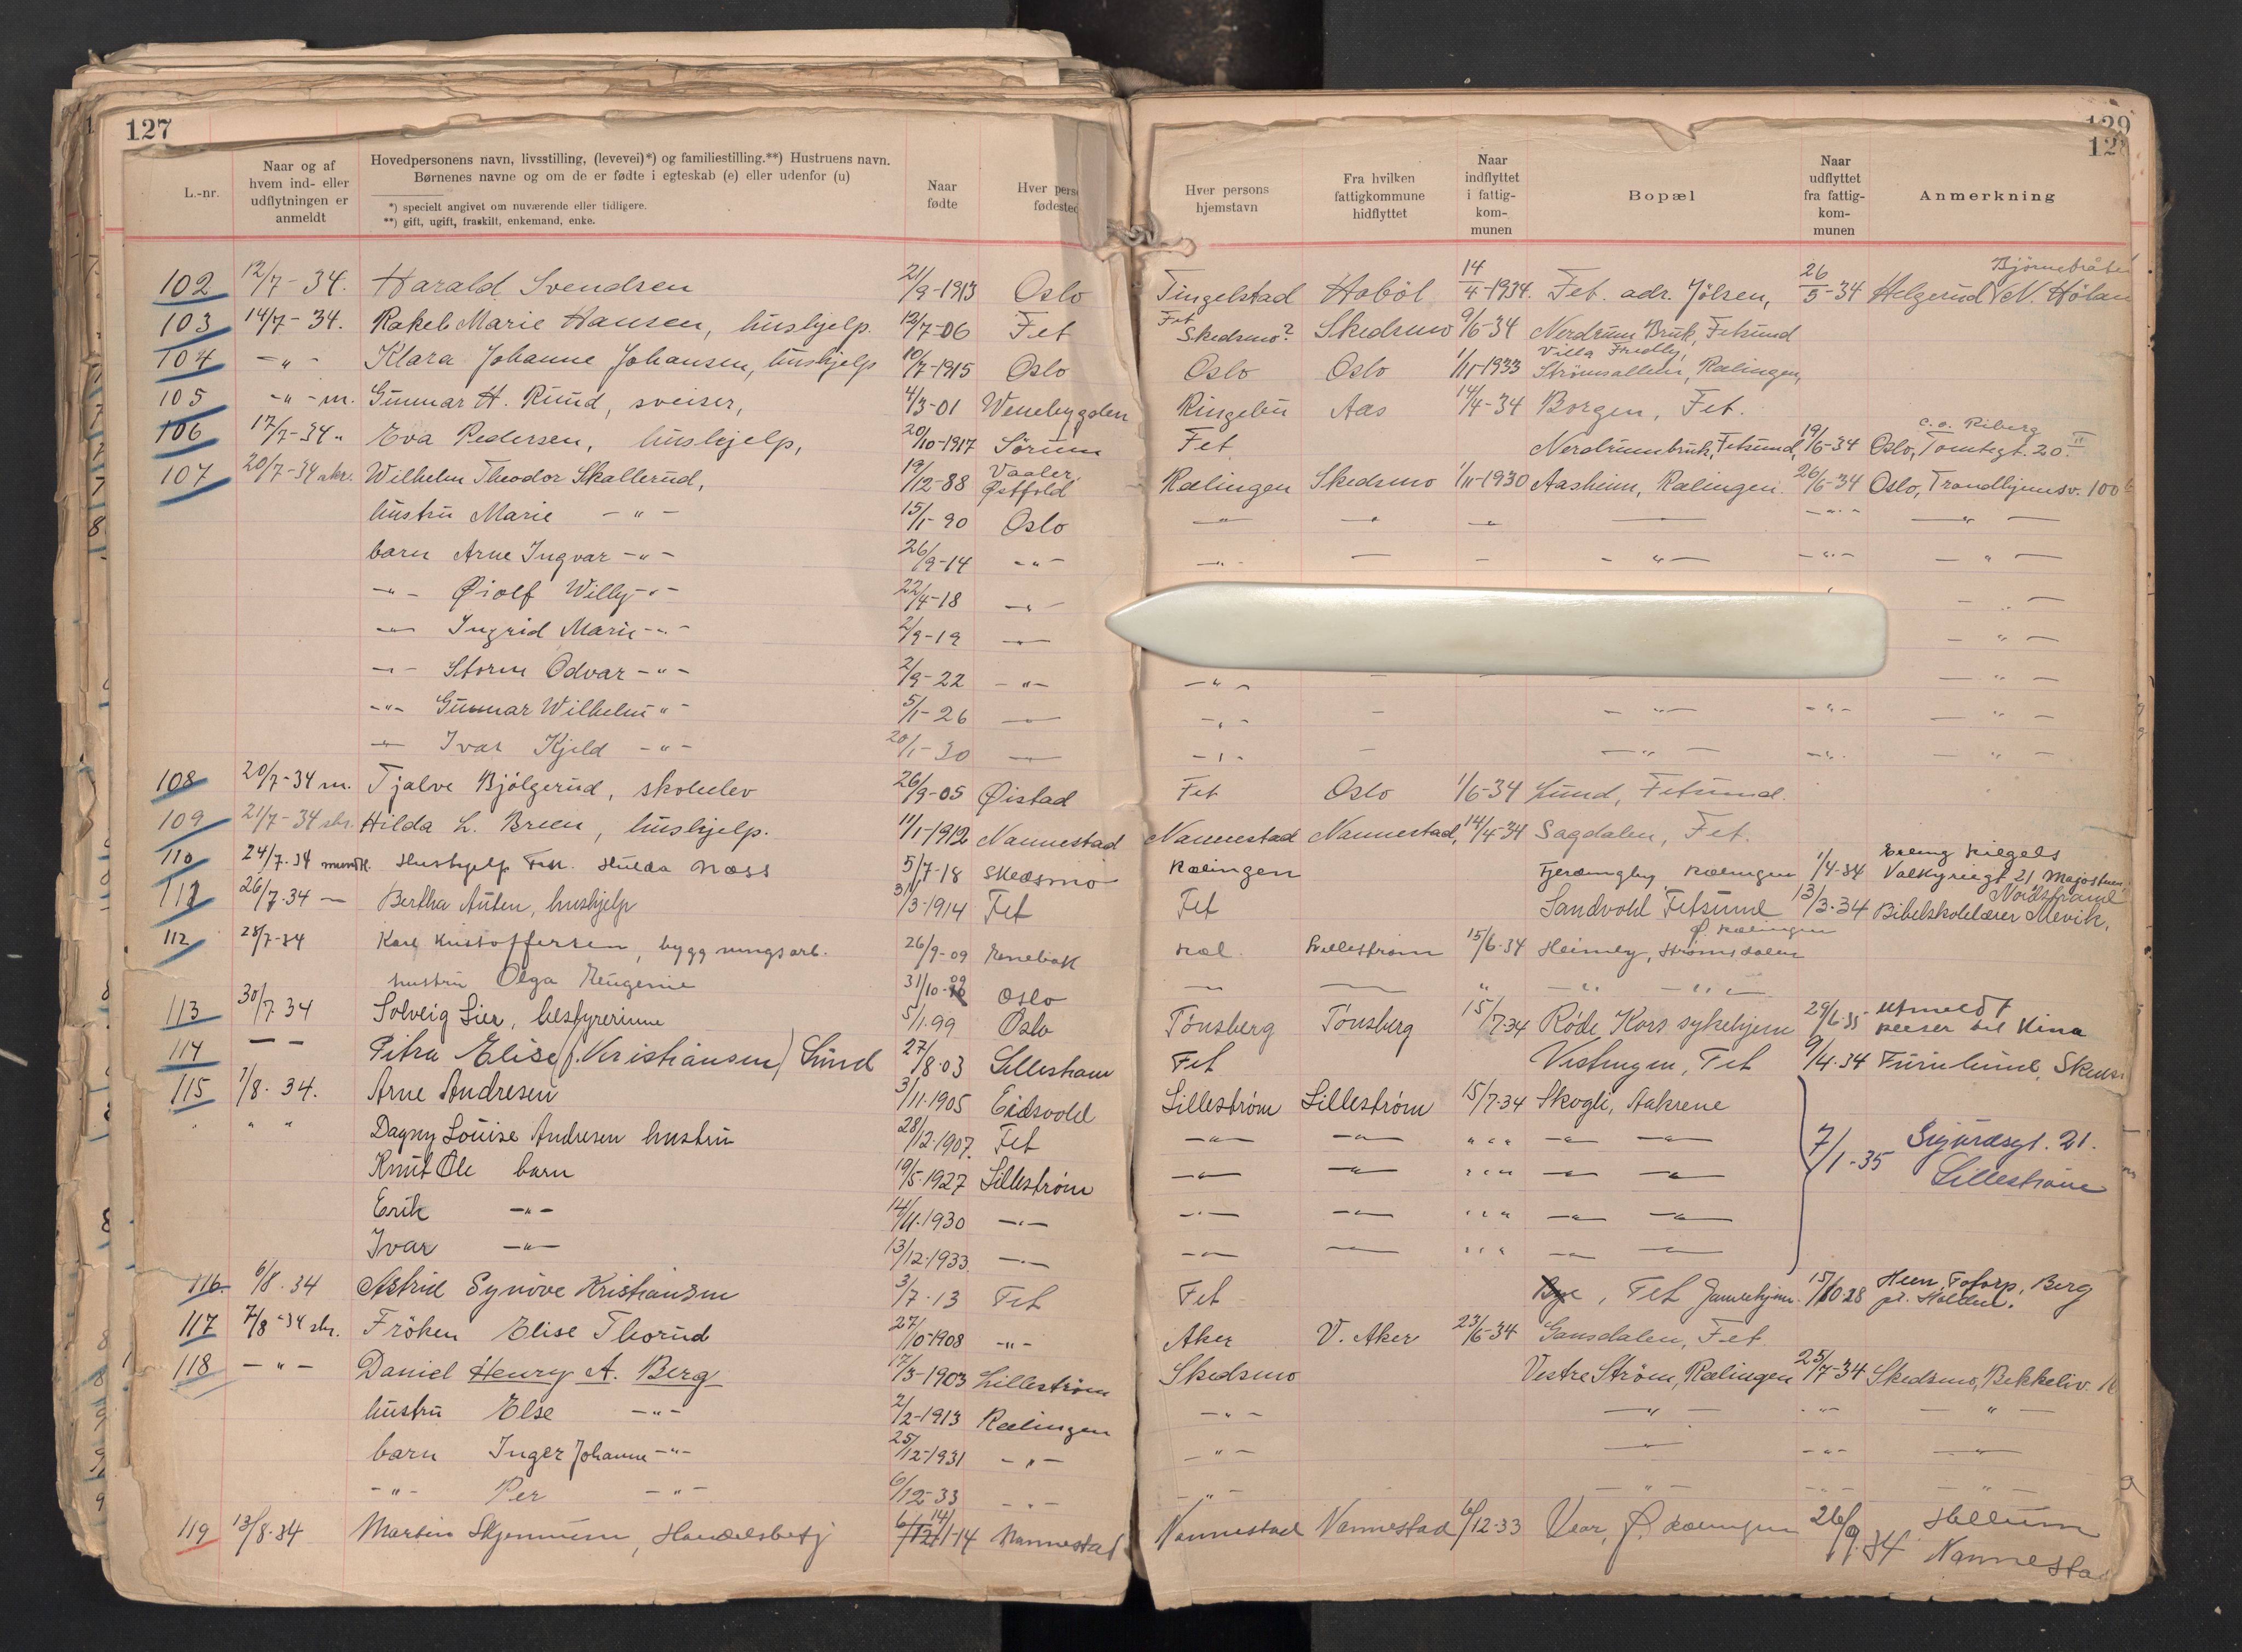 127
129
128
L.-nr.
Naar og af hvem ind- eller udflytningen er anmeldt
Hovedpersonens navn, livsstilling, (levevei)*) og familiestilling.**) Hustruens navn.
Børnenes navne og om de er fødte i egteskab (e) eller udenfor (u)
*) specielt angivet om nuværende eller tidligere.
**) gift, ugift, fraskilt, enkemand, enke.
Naar fødte
Hver pers fødested
Hver persons hjemstavn
Fra hvilken fattigkommune hidflyttet
Naar indflyttet i fattig-kom-munen
Bopæl
Naar udflyttet fra fattig-kom-munen
Anmerkning
102 12/7-34. Harald Svendsen 21/9-1913 Oslo Tingelstad Hobøl 14/4-1934. Fet. adr. Jølsen, 26/5-34 Helgerud N. Hølan
103 14/7-34. Rakel Marie Hansen, hushjelp. 12/7-06 Fet Fet Skedsmo? Skedsmo 9/6-34 Nerdrum Bruk, Fetsund
104 -"- Klara Johanne Johansen, hushjelp 10/7-1915 Oslo Oslo Oslo 1/11-1933 Villa Fredly, Strømsallen, Rælingen,
105 -"- m. Gunnar H. Ruud, sveiser, 4/3-01 Venebygden Ringebu Aas 14/4-34 Borgen, Fet.
106 17/7-34 " Eva Pedersen, hushjelp, 20/10-1917 Sørum Fet Nerdrumbruk, Fetsund, 19/6-34 c.o. Riberg Oslo, Tomtegt. 20 II
107 20/7-34 skr. Wilhelm Theodor Skallerud, 19/12-88 Vaaler, Østfold Rælingen Skedsmo 1/11-1930 Aasheim, Rælingen. 26/6-34 Oslo, Trondhjemsv. 100
hustru Marie -"- 15/1-90 Oslo -"- -"- -"- -"- -"-
barn Arne Ingvar -"- 26/9-14 -"- -"- - - -"- -"- -"-
-"- Øiolf Willy -"- 22/4-18 -"- -"-
-"- Ingrid Marie -"- 2/9-19 -"- -"-
-"- Storm Odvar -"- 2/9-22 -"- -"- -"-
-"- Gunnar Wilhelm -"- 5/1-26 -"- -"- - -"- -"- -"-
-"- Ivar Kjeld -"- 20/1-30 -"- -"- - -"- -"- -"-
108 20/7-34 m. Tjalve Bjølgerud, skoleelev 26/9-05 Øistad Fet Oslo 1/6-34 Lund, Fetsund.
109 21/7-34 skr. Hilda L. Breen, hushjelp. 11/1-1912 Nannestad Nannestad Nannestad, 14/4-34 Sagdalen, Fet.
110 24/7-34 mundtl. Hushjelp Frk. Hulda Næss 5/7-18 Skedsmo Rælingen Fjerdingby, Rælingen 1/4-34 Erling Kilgels Valkyriegt 21 Majostuen
111 26/7-34 — Bertha Auten, hushjelp 31/3-1914 Fet Fet Sandvold Fetsund 13/3-34 Bibelskolelærer Mevik, Nordstrand
112 28/7-34 Karl Kristoffersen, bygg ningsarb. 26/9-09 Enebak Ræl. Lillestrøm 15/6-34 Heimly, Strømsdalen Ø. Rælingen
hustru Olga Eugenie 31/10-09 Oslo -"- -"- " -"- -"-
113 30/7 34 Solveig Lier, bestyrerinne 5/1-99 Oslo Tønsberg Tønsberg 15/7-34 Røde Kors sykehjem 29/6-35 utmeldt reiser til Kina
114 — — Petra Elise (f. Kristiansen) Lund 27/8-03 Lillestrøm Fet Vestengen, Fet 9/4-34 Furulund, Skeds
115 1/8-34. Arne Andresen 3/11-1905 Eidsvold Lillestrøm Lillestrøm 15/7-34 Skogli, Aakrene
" " Dagny Louise Andresen hustru 28/12-1907. Fet -"- -"- " " " -"- -"- 7/1-35 Sigurdsgt. 21. Lillestrøm
Knut Ole barn 19/5-1927 Lillestrøm -"- -"- " " " -"- -"-
Erik -"- 14/11-1930 -"- -"- -"- " " " -"- -"-
Ivar -"- 13/12-1933. -"- -"- -"- " " " -"- -"-
116. 6/8-34 Astrid Synøve Kristiansen 3/7-13 Fet Fet Bye, Fet 15/10 28 Heen, Tofarp, Berg pr. Halden.
117 7/8-34 skr. Frøken Elise Thorud 27/10-1908 -"- Aker V. Aker 23/6-34 Gansdalen, Fet.
118 -"- Daniel Henry A. Berg 17/3-1903 Lillestrøm Skedsmo Vestre Strøm, Rælingen 25/7-34 Skedsmo, Bekkeliv.
hustru Else -"- 2/2-1913 Rælingen -"- -"- -"- -"-
barn Inger Johanne -"- 25/12-1931 -"- -"- -"- -"- -"-
-"- Per -"- 6/12-33 -"- -"- -"- -"- -"-
119 13/8-34 Martin Skjennum, Handelsbetj 14/1-14 Nannestad Nannestad Nannestad 6/12-33 Ø. Rælingen 26/9-34 Hellum Nannestad